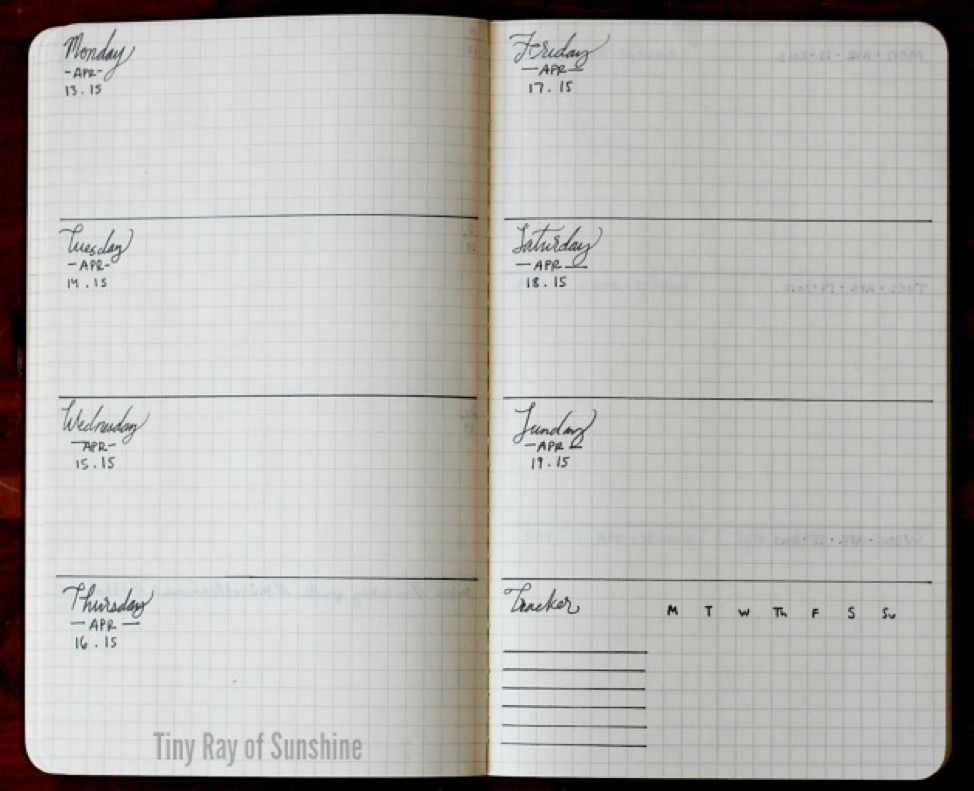 Monday
-APR-
13.15
Tuesday
-APR-
14.15
Wednesday
-APR-
15.15
Thursday
-APR-
16.15
Tiny Ray of Sunshine
Friday
-APR-
17.15
Saturday
-APR-
18.15
Sunday
-APR-
19.15
Tracker M T W Th F S Su